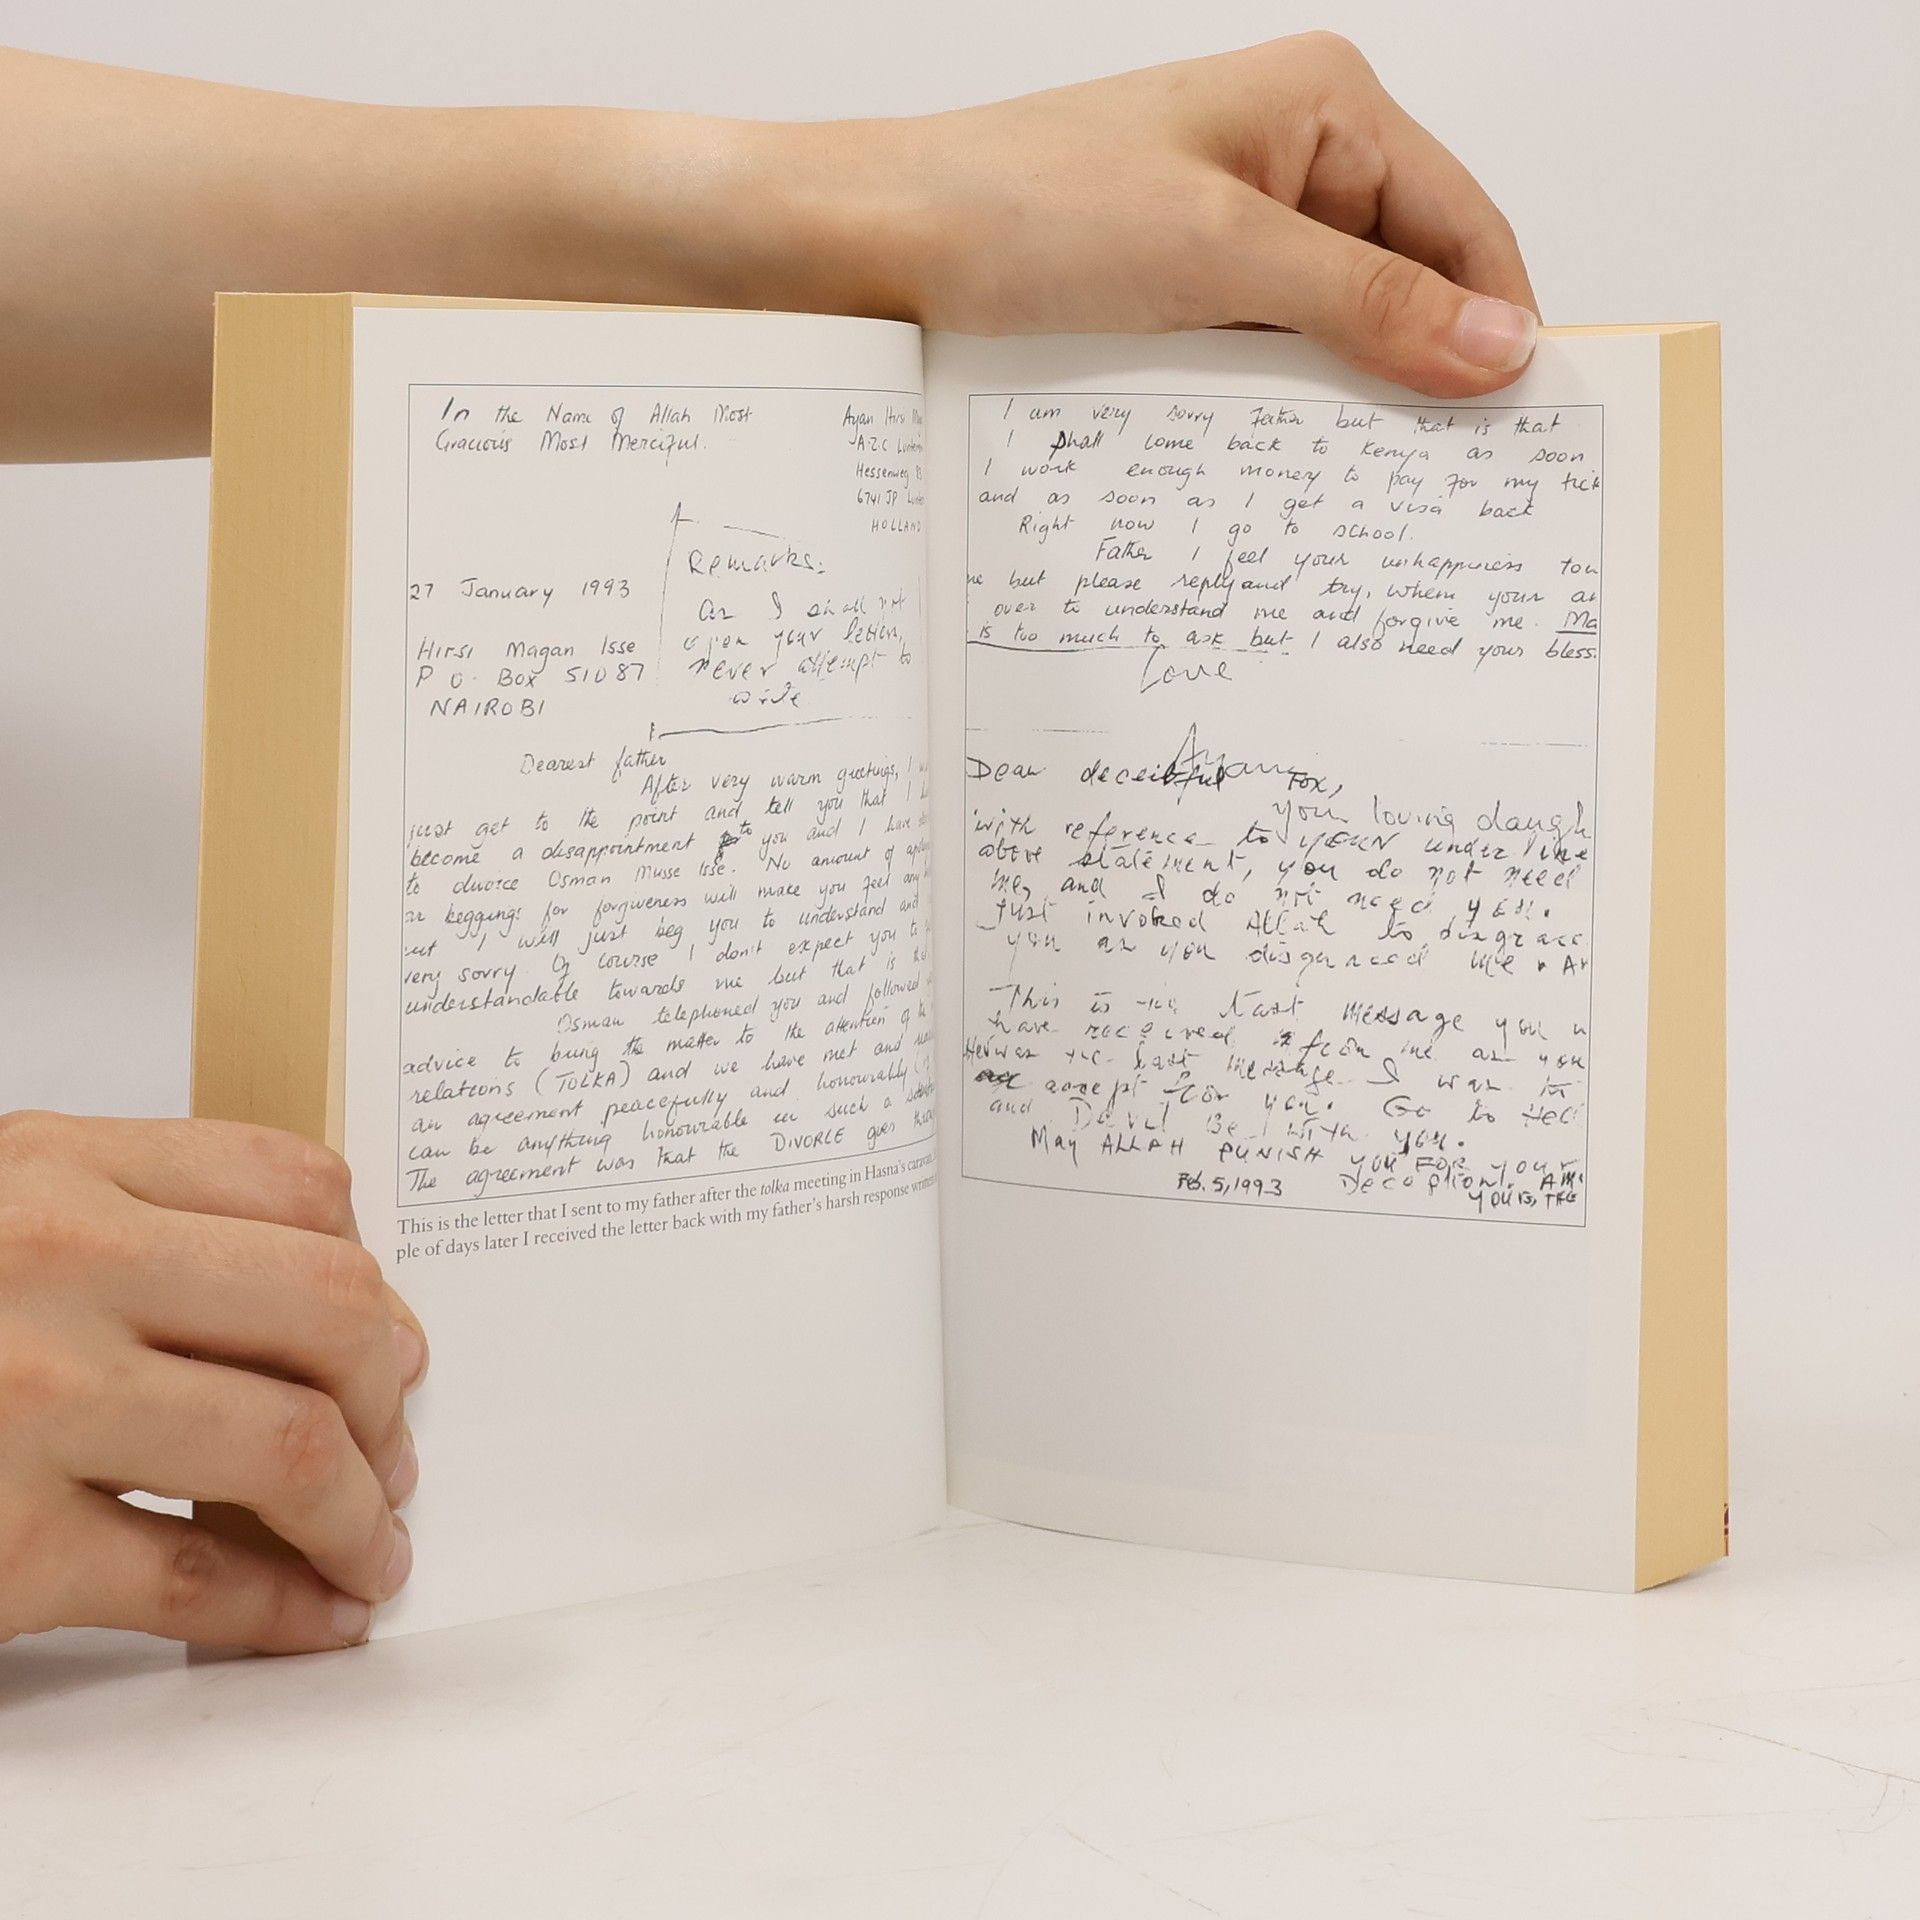 In the Name of Allah Most
Gracious Most Merciful.
Ayan Hirsi
A.Z.C
Hessenweg
6741 JP
HOLLAND
27 January 1993
Hirsi Magan Isse
P O. Box 51087
NAIROBI
Remarks:
as I shall not
open your letter,
never attempt to
write
Dearest father
After very warm greetings, I
just get to the point and tell you that I
become a disappointment to you and I have
to divorce Osman Musse Isse. No amount of
or beggings for forgiveness will make you feel any
but I will just beg you to understand and
very sorry. Of course I don't expect you to
understandable towards me but that is
Osman telephoned you and followed
advice to bring the matter to the attention of
relations (TOLKA) and we have met and
an agreement peacefully and honourably
can be anything honourable in such a
The agreement was that the DIVORCE goes
This is the letter that I sent to my father after the tolka meeting in Hasna's caravan.
ple of days later I received the letter back with my father's harsh response
I am very sorry Father but that is that
I shall come back to Kenya as soon
I work enough money to pay for my tick
and as soon as I get a visa back
Right now I go to school.
Father I feel your unhappiness tow
me but please reply and try, when your an
over to understand me and forgive me. Ma
is too much to ask but I also need your bless
Love
Ayan
Dear deceitful Fox,
your loving daugh
with reference to your underline
above statement, you do not need
me, and I do not need you.
Just invoked Allah to disgrace
you as you disgraced me.
This is the last message you
have received from me as your
was the last message I was to
accept from you. Go to Hell
and Devil Be with you.
May ALLAH PUNISH YOU FOR your
Deception.
Feb. 5, 1993
YOURS, THE